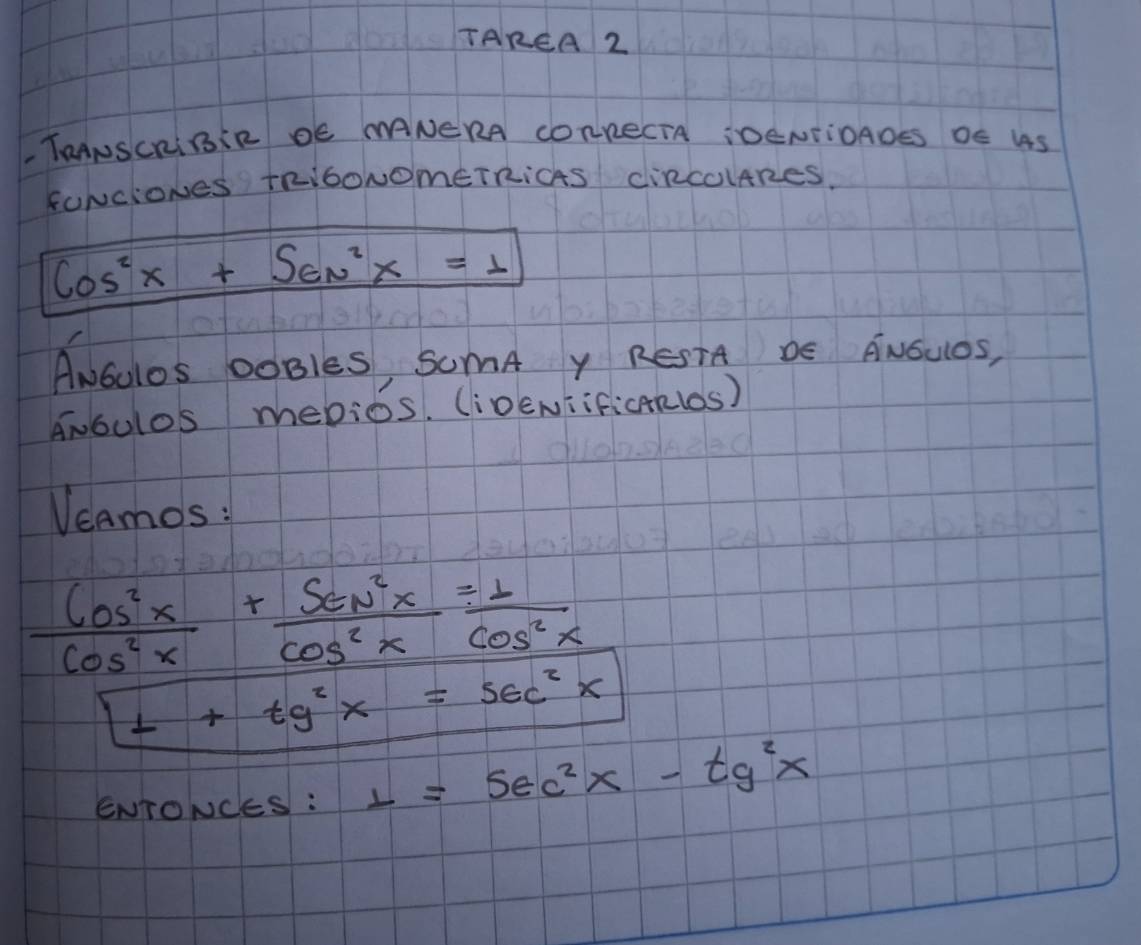 TAREA 2
- TRANSCRIBIR DE MANERA CORRECTA IDENTIDADES DE LAS
FUNCIONES TRIGONOMETRICAS CIRCULARES.
Cos²x + SEN²x = 1
ÁNGULOS DOBLES, SUMA Y RESTA DE ÁNGULOS,
ÁNGULOS MEDIÓS. (IDENTIFICARLOS)
VEAMOS:
Cos²x/Cos²x + SEN²x/cos²x = 1/cos²x
1 + tg²x = sec²x
ENTONCES: 1 = sec²x - tg²x